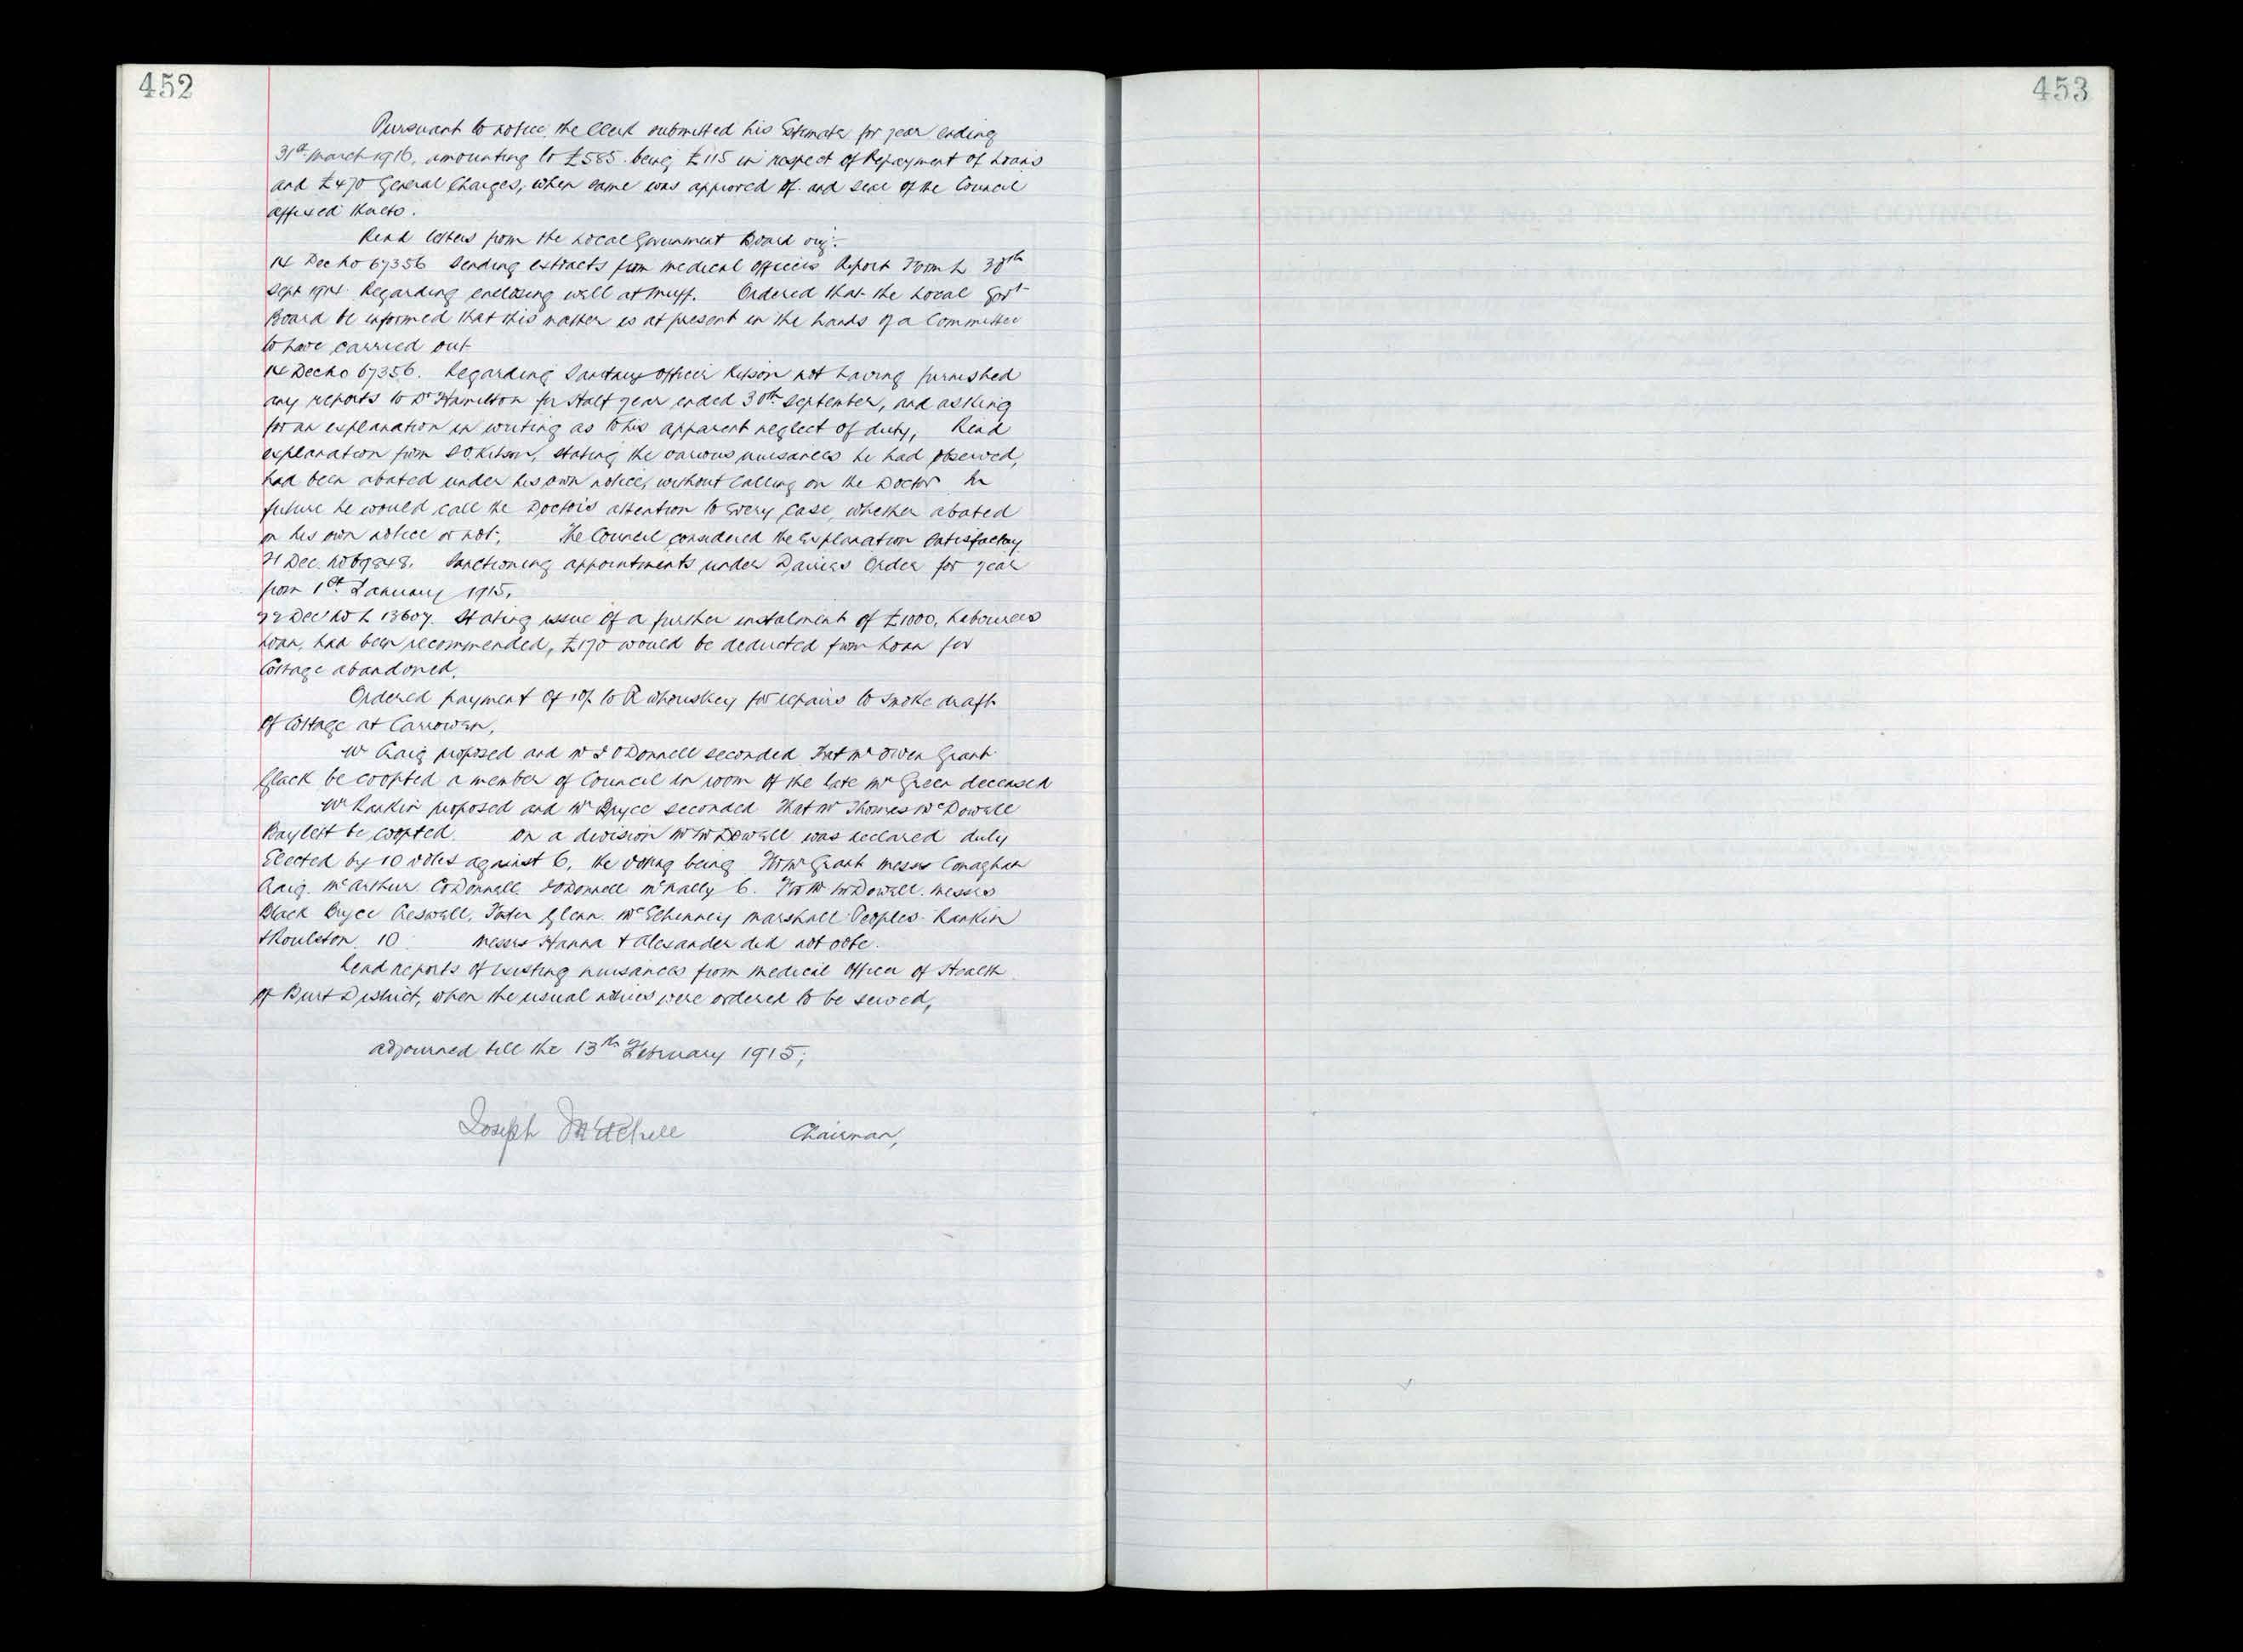 452
453
Pursuant to notice the Clerk submitted his Estimate for year ending
31st March 1916, amounting to £585. being £115 in respect of Repayment of Loans
and £470 General Charges, when same was approved of and seal of the Council
affixed thereto.
Read letters from the Local Government Board viz:-
14 Dec No 67356 Sending extracts from medical officers Report Form L 30th
Sept 1914 Regarding enclosing well at Muff. Ordered that the Local Govt
Board be informed that this matter is at present in the hands of a Committee
to have carried out
14 Dec No 67356. Regarding Sanitary officer Kilson not having furnished
any reports to Dr Hamilton for Half year ended 30th September, and asking
for an explanation in writing as to his apparent neglect of duty, Read
explanation from S O Kilson, stating the various nuisances he had observed,
had been abated under his own notice, without calling on the Doctor In
future he would call the Doctor's attention to every case, whether abated
on his own notice or not; The Council considered the explanation Satisfactory
21 Dec. No 69848. Sanctioning appointments under Dairies Order for year
from 1st January 1915.
22 Dec No L 13607. Stating issue of a further instalment of £1000, Labourers
Loan, had been recommended, £170 would be deducted from Loan for
Cottage abandoned.
Ordered payment of 10/- to R Whoriskey for repairs to smoke draft
of Cottage at Carrowen,
Mr Craig proposed and Mr J O'Donnell seconded That Mr Owen Grant
Glack be coopted a member of Council in room of the late Mr Green deceased
Mr Rankin proposed and Mr Bryce seconded That Mr Thomas McDowell
Baylett be coopted. On a division Mr McDowell was declared duly
Elected by 10 votes against 6, the voting being For Mr Grant Messrs Conaghan
Craig. McArthur C O'Donnell J O'Donnell McNally 6. For Mr McDowell. Messrs
Black Bryce Creswell, Foster Glenn. McElhinney Marshall Peoples Rankin
& Roulston. 10 Messrs Hanna & Alexander did not vote.
Read reports of existing nuisances from medical officer of Health
of Burt District, when the usual notices were ordered to be served,
adjourned till the 13th February 1915;
Joseph Mitchell Chairman,